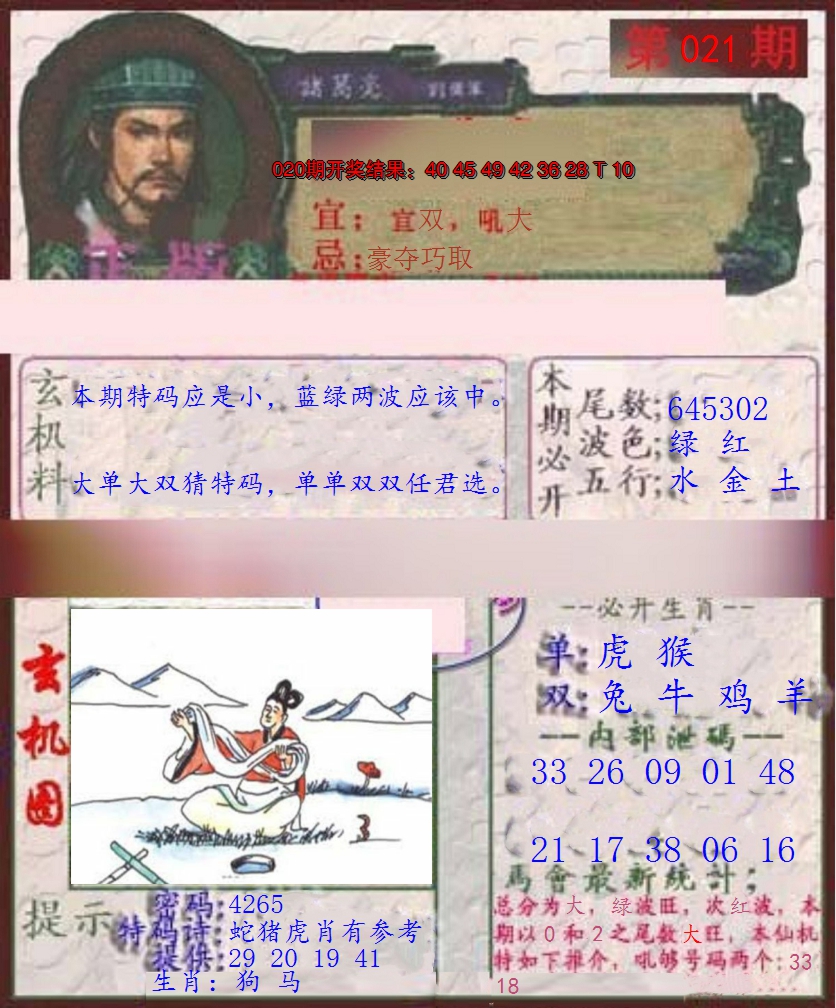 第 021 期
諸葛亮
020期开奖结果：40 45 49 42 36 28 T 10
宜；宜双，吼大
忌；豪夺巧取
正版
玄机料
本期特码应是小，蓝绿两波应该中。
大单大双猜特码，单单双双任君选。
本期必开
尾数；645302
波色；绿 红
五行；水 金 土
玄机图
--必开生肖--
单：虎 猴
双：兔 牛 鸡 羊
—内部泄碼—
33 26 09 01 48
21 17 38 06 16
馬會最新統計；
总分为大，绿波旺，次红波，本
期以0和2之尾数大旺，本仙机
特如下推介，吼够号码两个：33
18
提示
密码：4265
特码诗：蛇猪虎肖有参考
提供：29 20 19 41
生肖：狗 马